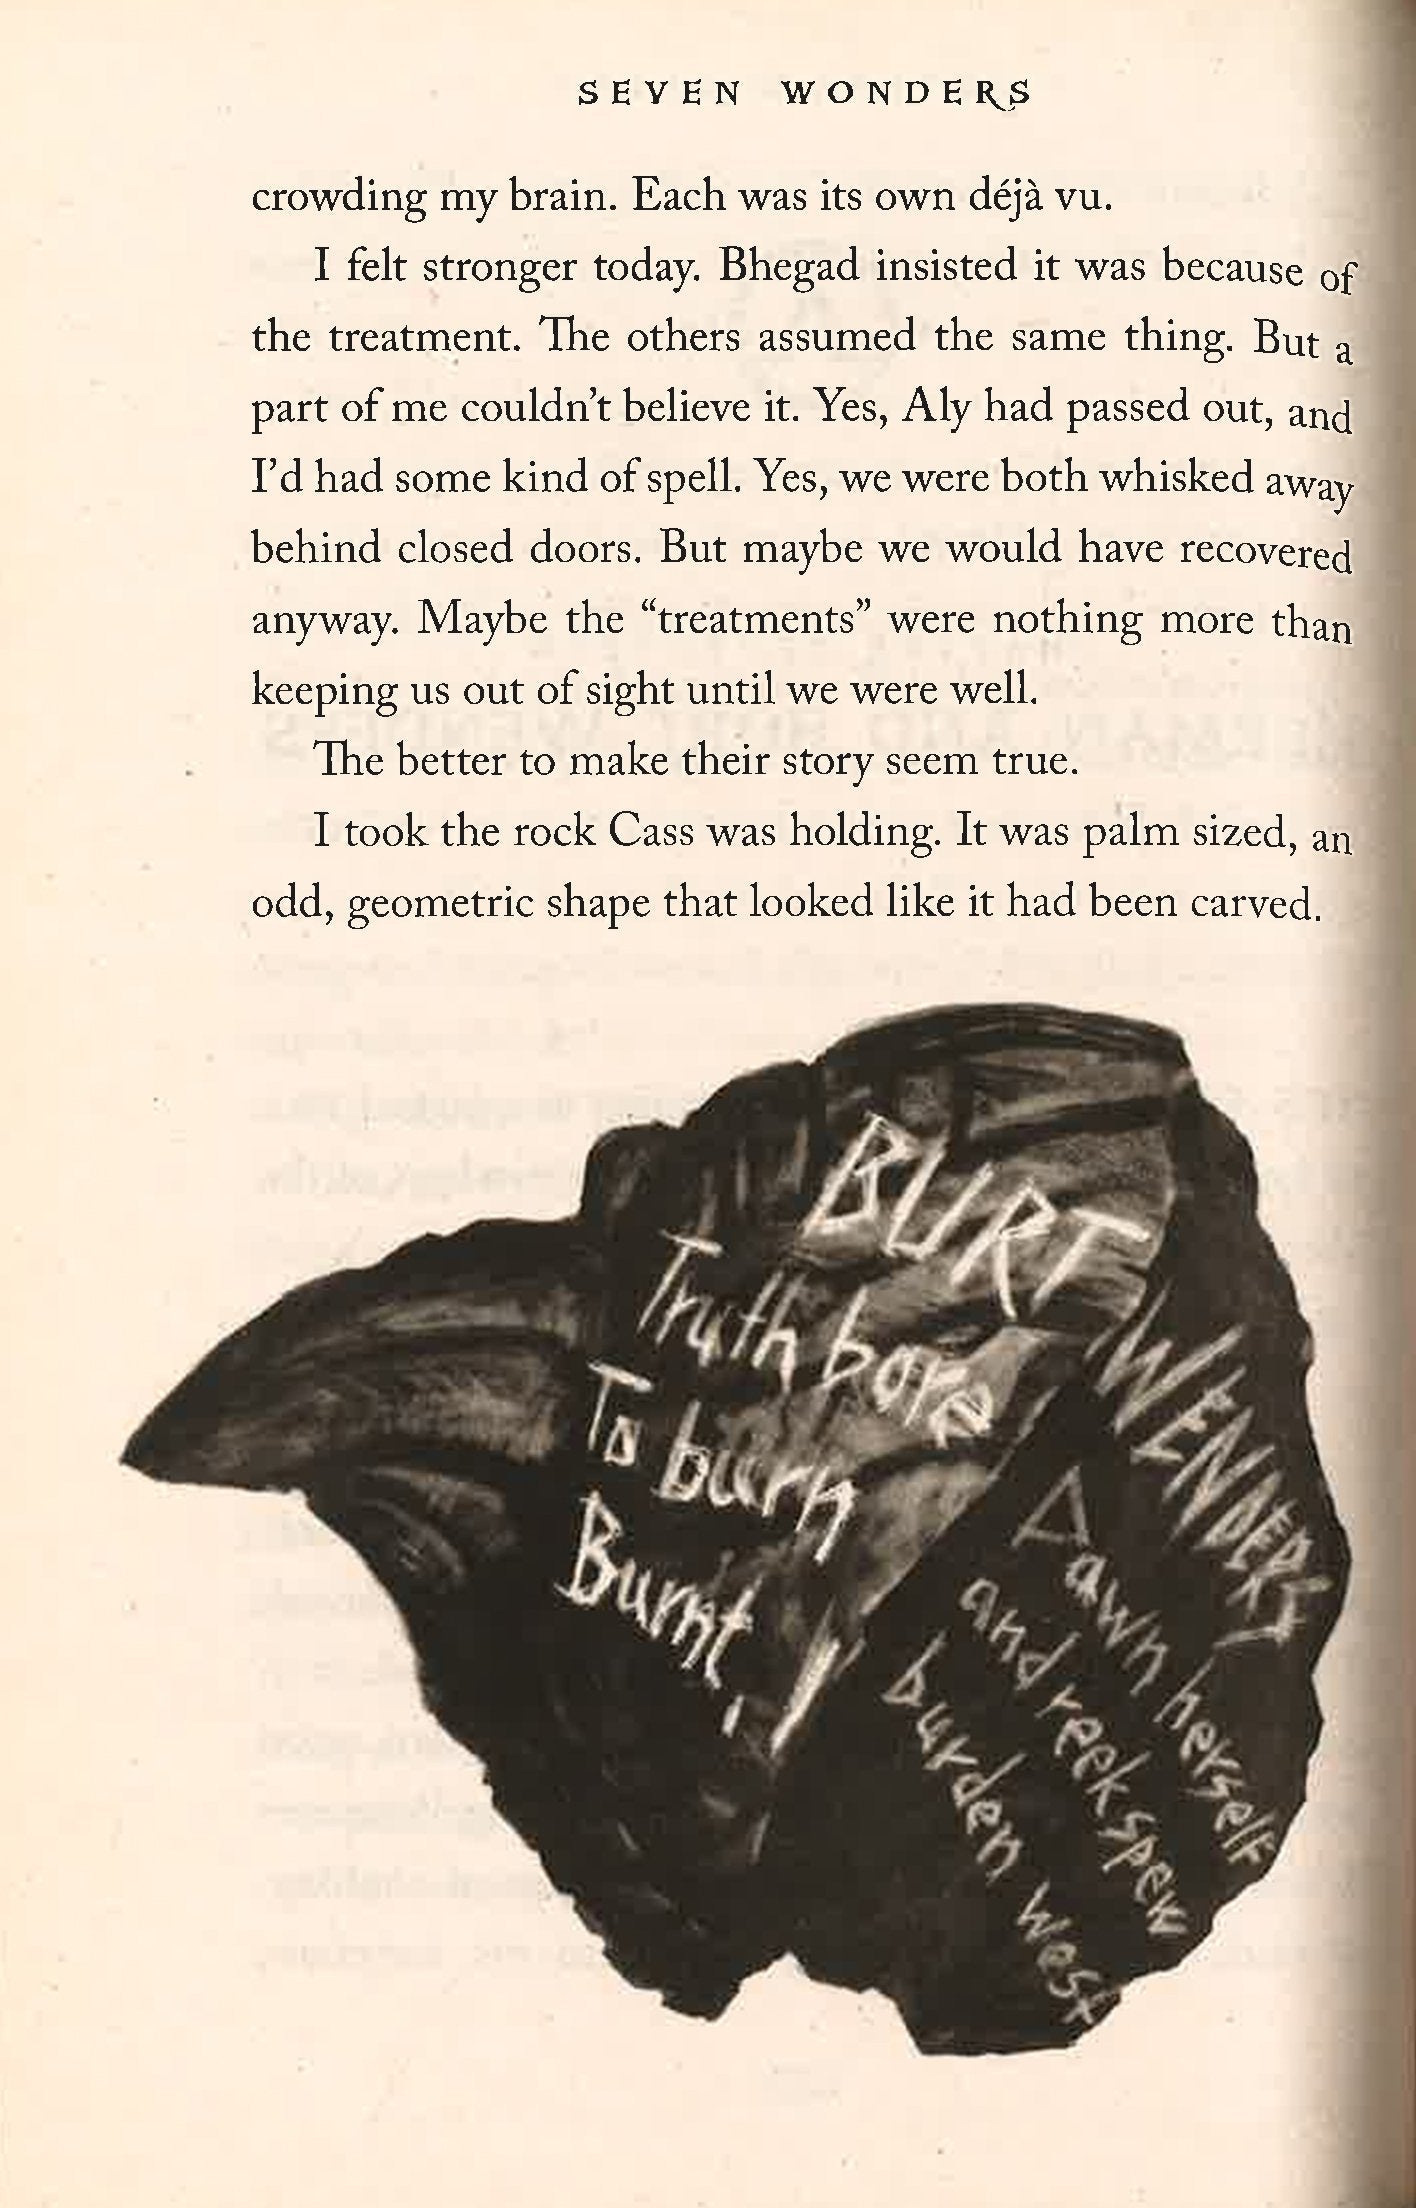 SEVEN WONDERS
crowding my brain. Each was its own déjà vu.
I felt stronger today. Bhegad insisted it was because of
the treatment. The others assumed the same thing. But a
part of me couldn't believe it. Yes, Aly had passed out, and
I'd had some kind of spell. Yes, we were both whisked away
behind closed doors. But maybe we would have recovered
anyway. Maybe the “treatments” were nothing more than
keeping us out of sight until we were well.
The better to make their story seem true.
I took the rock Cass was holding. It was palm sized, an
odd, geometric shape that looked like it had been carved.
BURT
WENDERS
Truth bore
To burn
Burnt,
Dawn herself
and reek spew
burden west